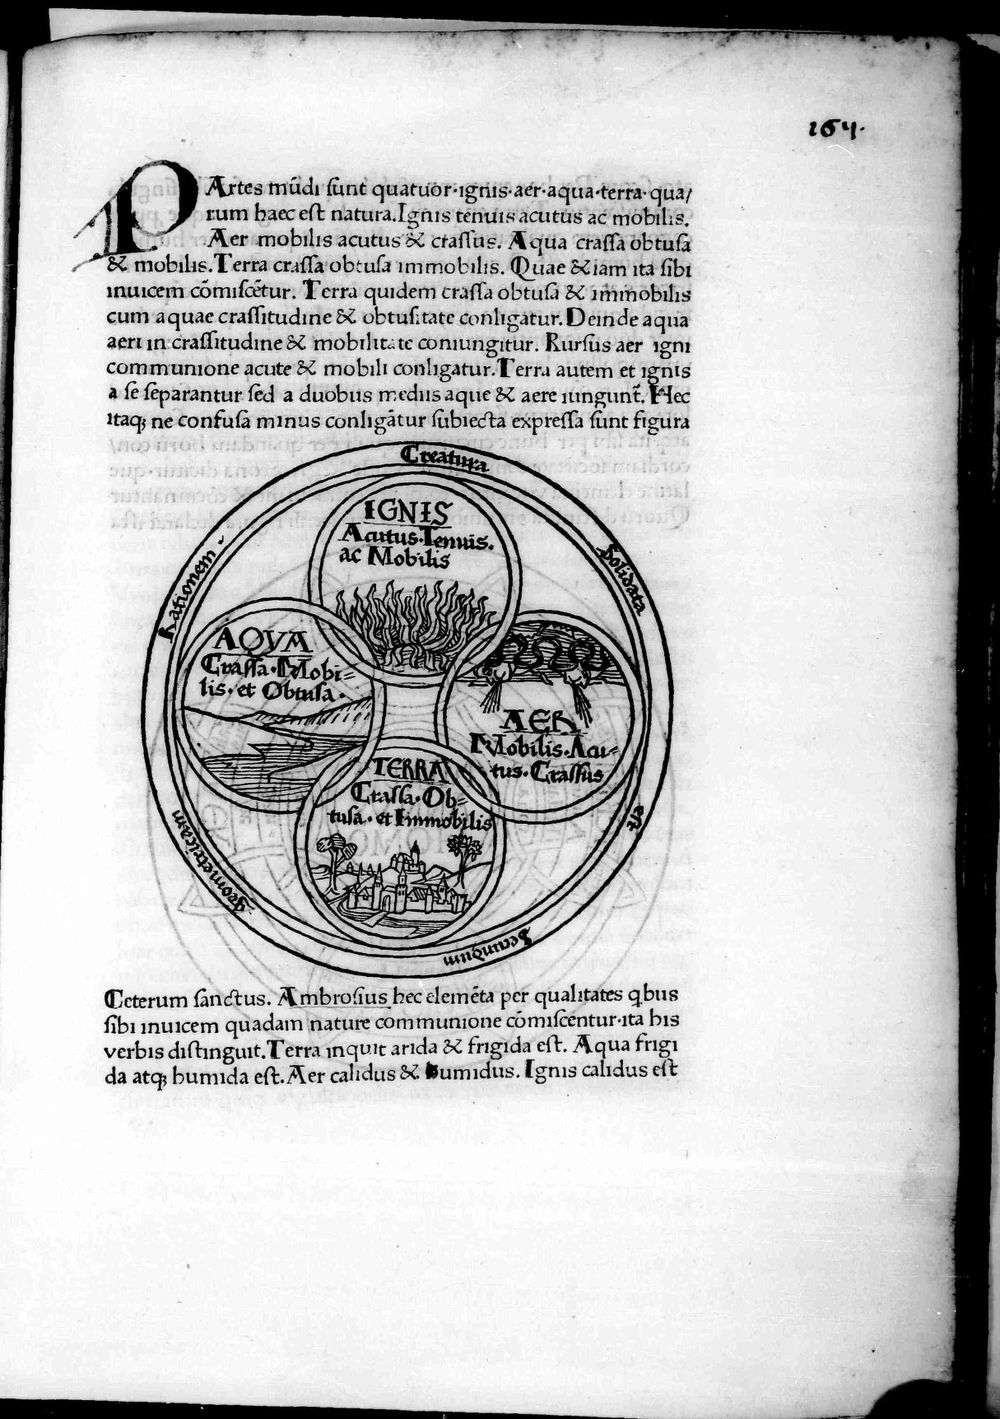 164.
PArtes mūdi sunt quatuor·ignis·aer·aqua·terra·qua/
rum haec est natura.Ignis tenuis acutus ac mobilis.
Aer mobilis acutus & crassus. Aqua crassa obtusa
& mobilis.Terra crassa obtusa immobilis. Quae &iam ita sibi
inuicem cōmiscētur. Terra quidem crassa obtusa & immobilis
cum aquae crassitudine & obtusitate conligatur. Deinde aqua
aeri in crassitudine & mobilitate coniungitur. Rursus aer igni
communione acute & mobili conligatur.Terra autem et ignis
a se separantur sed a duobus mediis aque & aere iungunt̄. Hec
itaq; ne confusa minus conligātur subiecta expressa sunt figura
Creatura
Solidata
est
Secundum
Geometricam
Rationem
IGNIS
Acutus·Tenuis.
ac Mobilis
AQVA
Crassa·Mobi=
lis·et Obtusa·
AER
Mobilis·Acu=
tus·Crassus
TERRA
Crassa·Ob=
tusa·et Immobilis
Ceterum sanctus. Ambrosius hec elemēta per qualitates q̄bus
sibi inuicem quadam nature communione cōmiscentur·ita his
verbis distinguit.Terra inquit arida & frigida est. Aqua frigi
da atq; humida est. Aer calidus & humidus. Ignis calidus est